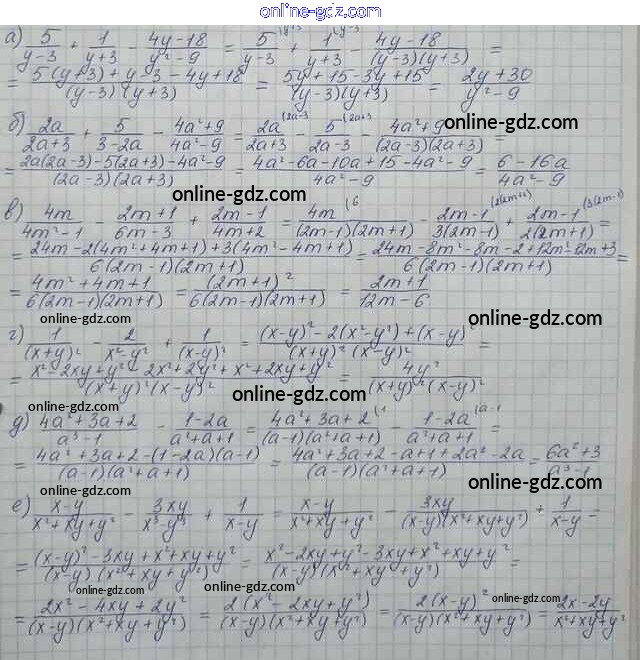 online-gdz.com
а) 5/(y-3) + 1/(y+3) - (4y-18)/(y²-9) = 5/(y-3) |y+3 + 1/(y+3) |y-3 - (4y-18)/((y-3)(y+3)) =
= (5(y+3)+y-3-4y+18)/((y-3)(y+3)) = (5y+15-3y+15)/((y-3)(y+3)) = (2y+30)/(y²-9)
online-gdz.com
б) 2a/(2a+3) + 5/(3-2a) - (4a²+9)/(4a²-9) = 2a/(2a+3) |2a-3 - 5/(2a-3) |2a+3 - (4a²+9)/((2a-3)(2a+3)) =
= (2a(2a-3)-5(2a+3)-4a²-9)/((2a-3)(2a+3)) = (4a²-6a-10a+15-4a²-9)/(4a²-9) = (6-16a)/(4a²-9)
online-gdz.com
в) 4m/(4m²-1) - (2m+1)/(6m-3) + (2m-1)/(4m+2) = 4m/((2m-1)(2m+1)) |6 - (2m-1)/(3(2m-1)) |2(2m+1) + (2m-1)/(2(2m+1)) |3(2m-1) =
= (24m-2(4m²+4m+1)+3(4m²-4m+1))/(6(2m-1)(2m+1)) = (24m-8m²-8m-2+12m²-12m+3)/(6(2m-1)(2m+1)) =
= (4m²+4m+1)/(6(2m-1)(2m+1)) = (2m+1)²/(6(2m-1)(2m+1)) = (2m+1)/(12m-6)
online-gdz.com online-gdz.com
г) 1/(x+y)² - 2/(x²-y²) + 1/(x-y)² = ((x-y)²-2(x²-y²)+(x-y)²)/((x+y)²(x-y)²) =
= (x²-2xy+y²-2x²+2y²+x²+2xy+y²)/((x+y)²(x-y)²) = 4y²/((x+y)²(x-y)²)
online-gdz.com online-gdz.com
д) (4a²+3a+2)/(a³-1) - (1-2a)/(a²+a+1) = (4a²+3a+2)/((a-1)(a²+a+1)) |1 - (1-2a)/(a²+a+1) |a-1 =
= (4a²+3a+2-(1-2a)(a-1))/((a-1)(a²+a+1)) = (4a²+3a+2-a+1+2a²-2a)/((a-1)(a²+a+1)) = (6a²+3)/(a³-1)
online-gdz.com online-gdz.com
е) (x-y)/(x²+xy+y²) - 3xy/(x³-y³) + 1/(x-y) = (x-y)/(x²+xy+y²) - 3xy/((x-y)(x²+xy+y²)) + 1/(x-y) =
online-gdz.com
= ((x-y)²-3xy+x²+xy+y²)/((x-y)(x²+xy+y²)) = (x²-2xy+y²-3xy+x²+xy+y²)/((x-y)(x²+xy+y²)) =
online-gdz.com online-gdz.com online-gdz.com
= (2x²-4xy+2y²)/((x-y)(x²+xy+y²)) = 2(x²-2xy+y²)/((x-y)(x²+xy+y²)) = 2(x-y)²/((x-y)(x²+xy+y²)) = (2x-2y)/(x²+xy+y²)
online-gdz.com